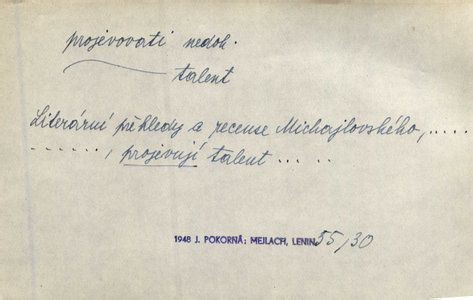 projevovati nedok.
talent
Literární přehledy a recense Michajlovského, .....
......, projevují talent ... ..
1948 J. POKORNÁ: MEJLACH, LENIN 55/30